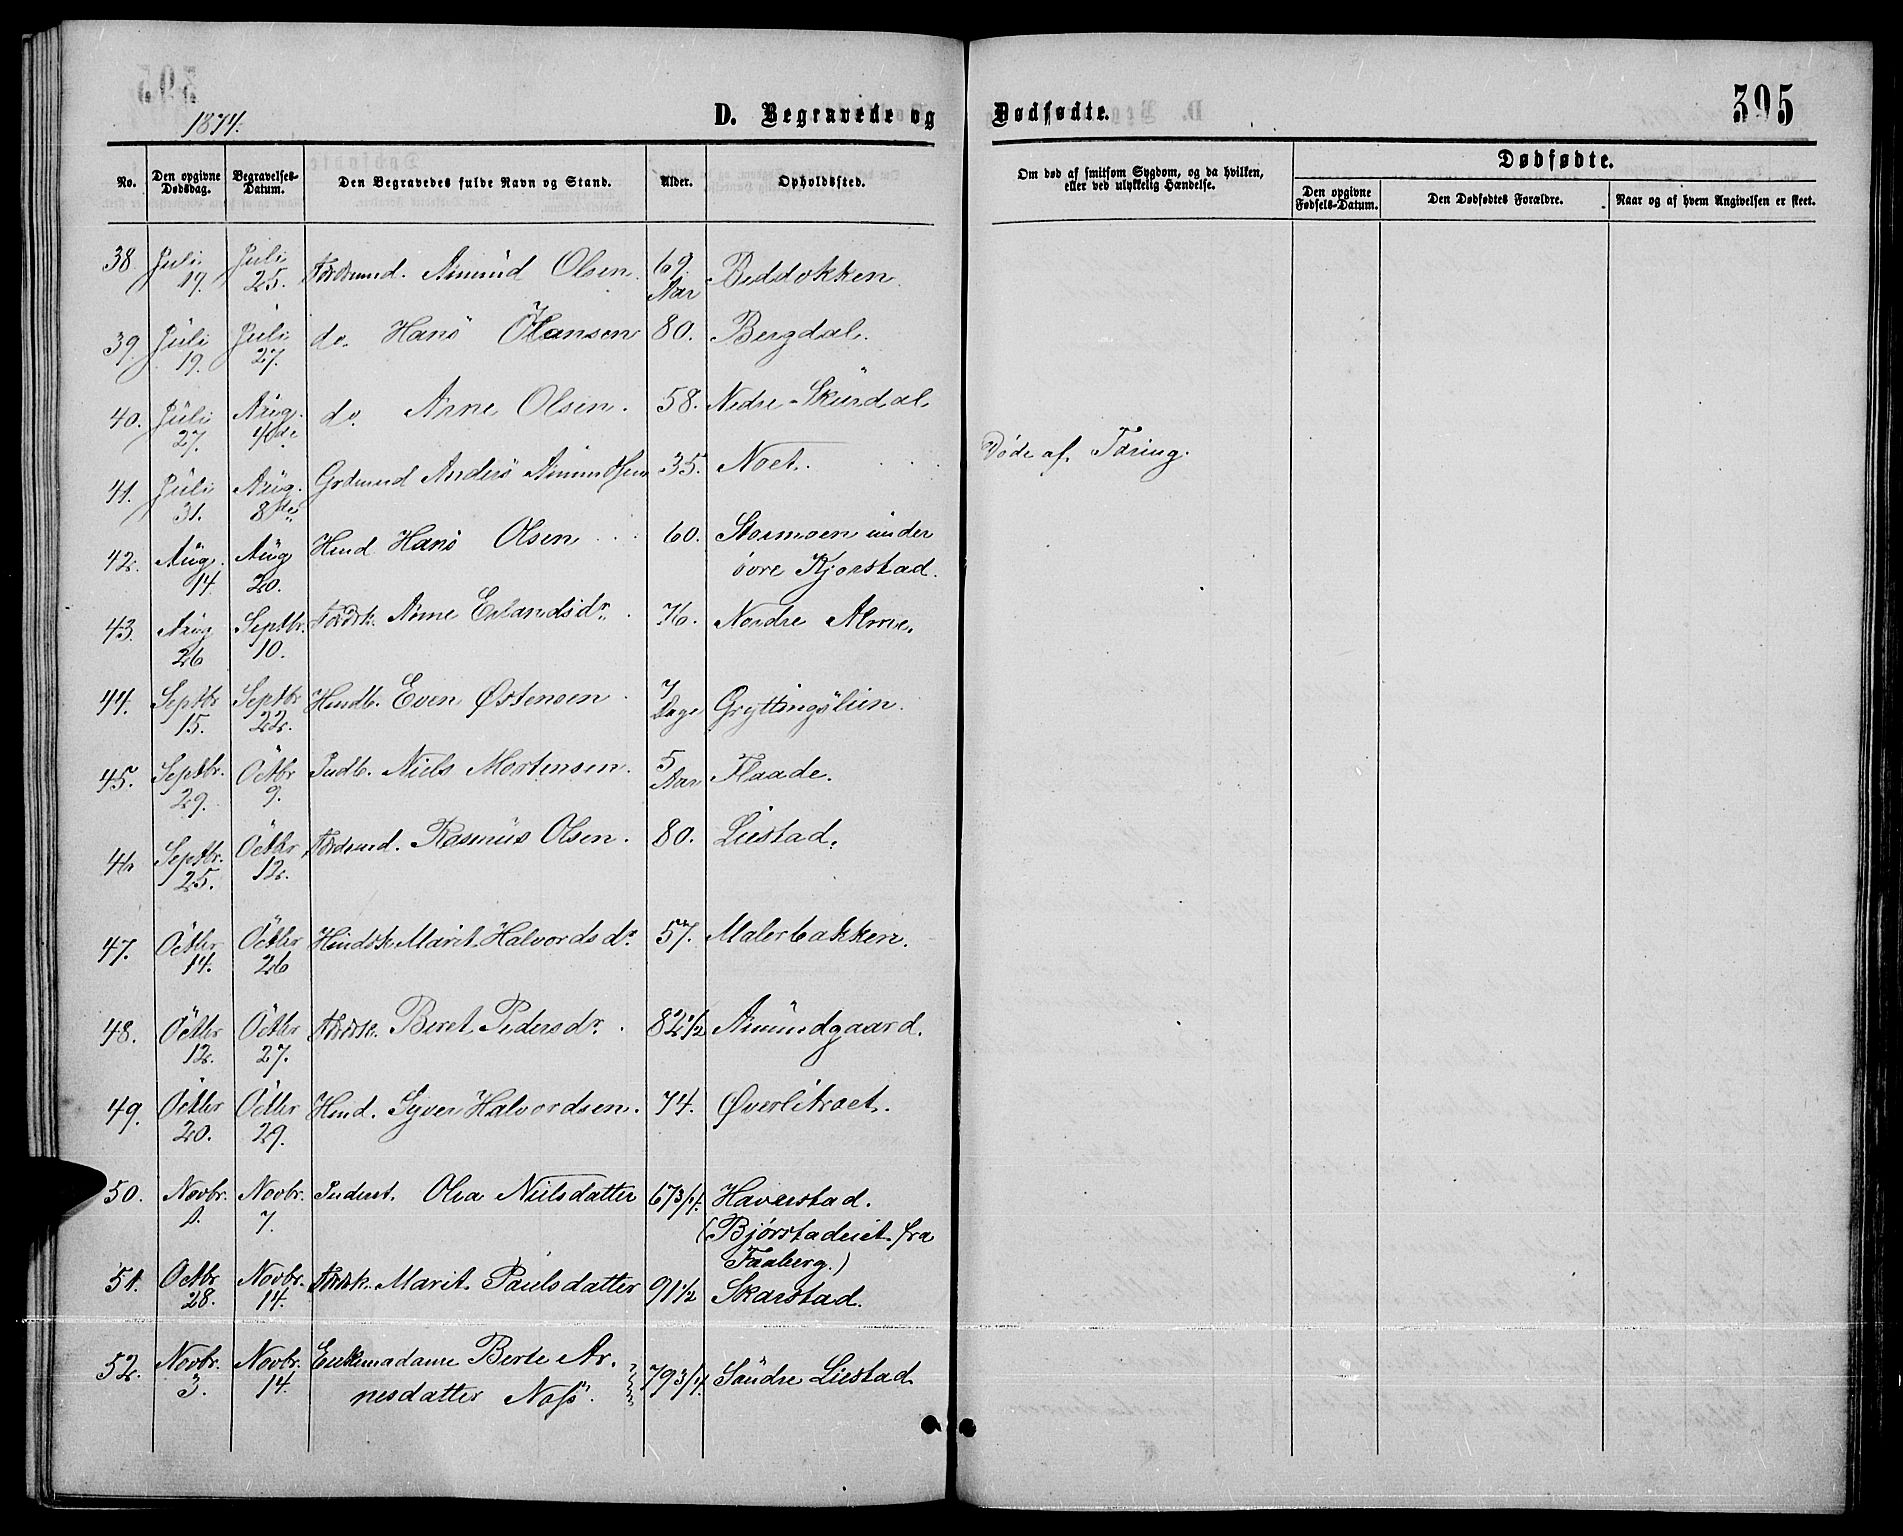 1874.
D. Begravede og Dødfødte.
395
No.
Den opgivne Dødsdag.
Begravelses-Datum.
Den Begravedes fulde Navn og Stand.
Alder.
Opholdssted.
Om død af smitsom Sygdom, og da hvilken, eller ved ulykkelig Hændelse.
Dødfødte.
Den opgivne Fødsels-Datum.
Den Dødfødtes Forældre.
Naar og af hvem Angivelsen er skeet.
38 Juli 19. Juli 25. Fdrdmd. Amund Olsen 69 Aar
39. Juli 19. Juli 27. do. Hans Hansen 80. Bergdal.
40. Juli 27. Aug. 4de do. Arne Olsen. 58. Nedre Skurdal
41. Juli 31. Aug. 8de Grdmd Anders Amundsen 35. Noet. Døde af Tæring.
42. Aug. 14. Aug 20. Hmd Hans Olsen 60. Stormoen under
övre Kjorstad.
43. Aug 26 Septbr. 10. Fdrdsk. Anne Erlandsdr. 76. Nordre
44. Septbr 15. Septbr 22. Hmdb. Even Østensen 7 Dage Gryttingslien.
45. Septbr. 29. Octbr 9. Indb. Niels Mortensen. 5 Aar Flaade.
46 Septbr. 25. Octbr 12. Fdrdmd. Rasmus Olsen. 80. Liestad.
47. Octbr 14. Octbr 26 Hmdsk Marit Halvordsdr. 57. Malerbakken.
48. Octbr 12. Octbr 27. Fdrdsk. Beret Pedersdr. 82 1/2 Amundgaard.
49. Octbr 20. Octbr 29. Hmd. Syver Halvordsen. 74. Øverlitroet.
50. Novbr. 1. Novbr. 7. Inderst. Olea Nielsdatter 67 3/4. Haverstad.
(Bjørstadeiet fra
Faaberg.)
51. Octbr 28. Novbr. 14. Fdrdsk. Marit Paulsdatter 91 1/2 Skarstad.
52. Novbr. 3. Novbr. 14. Enkemadame Berte Ar-
nesdatter Noss. 79 3/4. Söndre Liestad